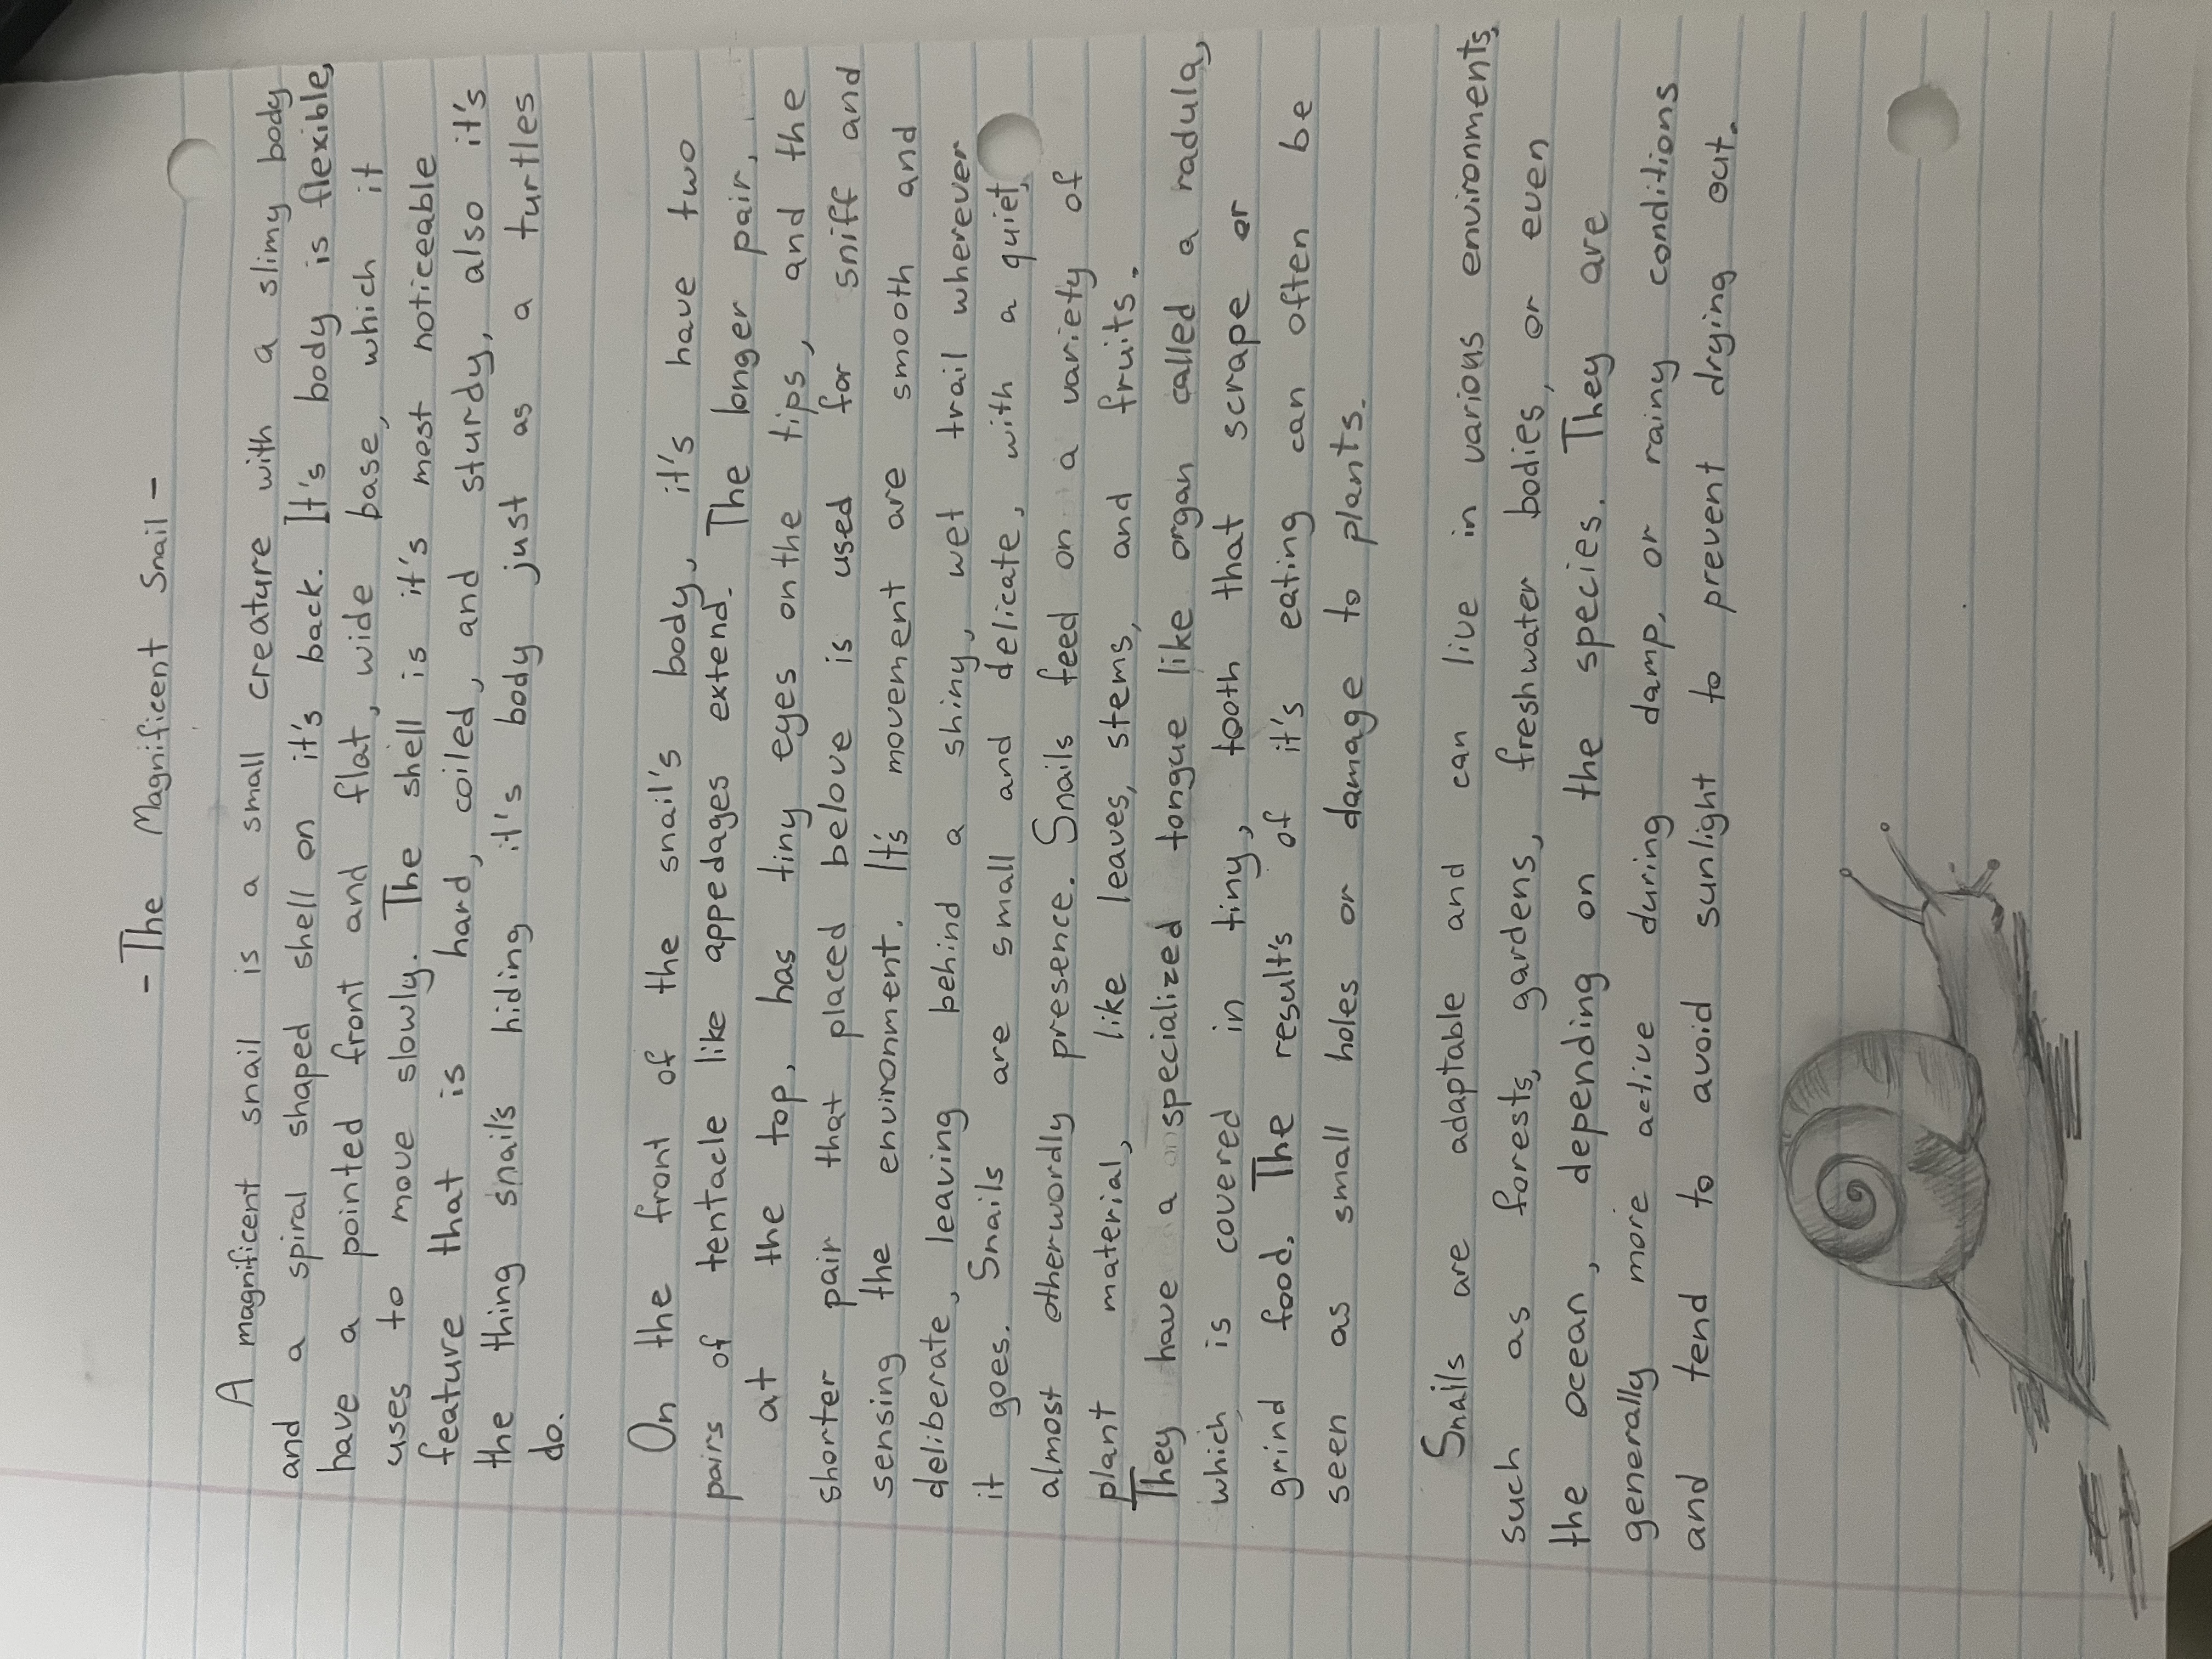 - The Magnificent Snail -
A magnificent snail is a small creature with a slimy body
and a spiral shaped shell on it's back. It's body is flexible,
have a pointed front and flat, wide base, which it
uses to move slowly. The shell is it's most noticeable
feature that is hard, coiled, and sturdy, also it's
the thing snail's hiding it's body just as a turtles
do.
On the front of the snail's body, it's have two
pairs of tentacle like appedages extend. The longer pair,
at the top, has tiny eyes on the tips, and the
shorter pair that placed belove is used for sniff and
sensing the environment. It's movement are smooth and
deliberate, leaving behind a shiny, wet trail wherever
it goes. Snails are small and delicate, with a quiet,
almost otherwordly presence. Snails feed on a variety of
plant material, like leaves, stems, and fruits.
They have a specialized tongue like organ called a radula,
which is covered in tiny, tooth that scrape or
grind food. The result's of it's eating can often be
seen as small holes or damage to plants.
Snails are adaptable and can live in various environments,
such as forests, gardens, freshwater bodies, or even
the ocean, depending on the species. They are
generally more active during damp, or rainy conditions
and tend to avoid sunlight to prevent drying out.